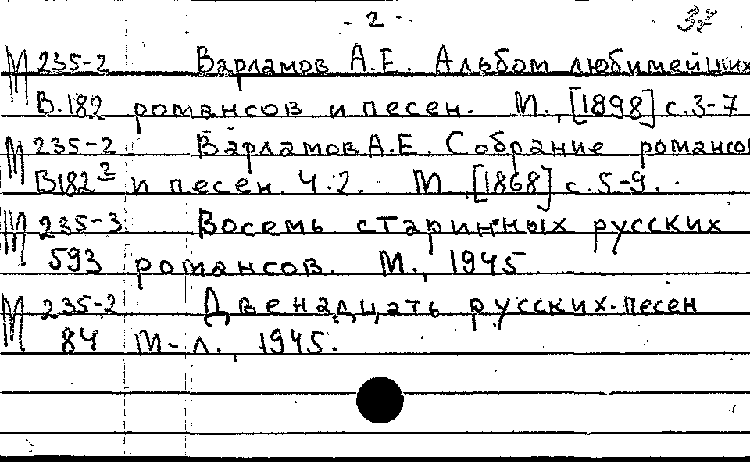 - 2 - 37
М 235-2 Варламов А.Е. Альбом любимейших
В.182 романсов и песен. М., [1898] с.3-7
М 235-2 Варламов А.Е. Собрание романсо
В182³ и песен. Ч.2. М. [1868] с.5-9.
М 235-3 Восемь старинных русских
593 романсов. М., 1945
М 235-2 Двенадцать русских песен
84 М-Л., 1945.